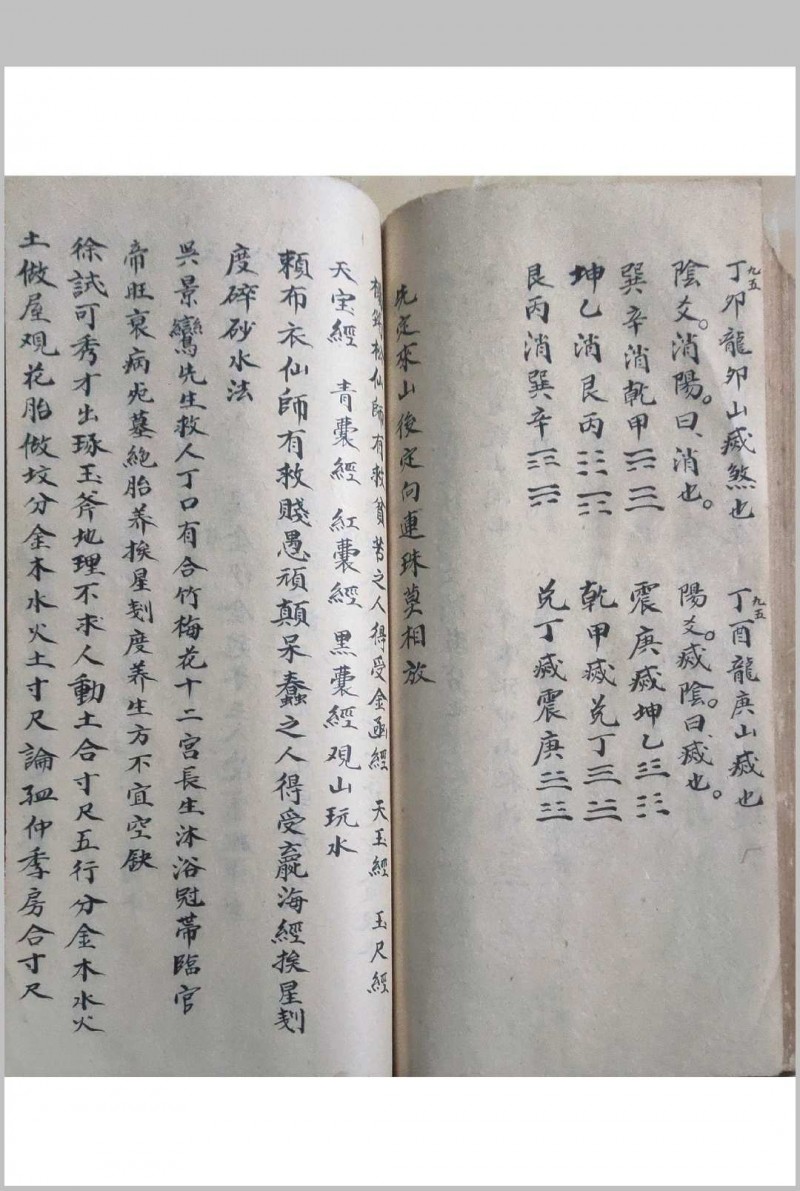 九五
丁卯龍卯山㓕煞也
陰爻。消陽。曰、消也。
巽辛消乾甲☴☰
坤乙消艮丙☷☶
艮丙消巽辛☶☴
九五
丁酉龍庚山㓕也
陽爻。㓕陰。曰、㓕也。
震庚㓕坤乙☳☷
乾甲㓕兑丁☰☱
兑丁㓕震庚☱☳
先定來山後定向連珠莫相放
松仙師有救貧苦之人得受金函經 天玉經 玉尺經
天宝經 青囊經 紅囊經 黑囊經观山玩水
頼布衣仙師有救賤愚頑顛呆蠢之人得受嬴海經挨星刻
度碎砂水法
吳景鸞先生救人丁口有合竹梅花十二宮長生沐浴冠帶臨官
帝旺衰病死墓絕胎养挨星刻度养生方不宜空缺
徐試可秀才出琢玉斧地理不求人動土合寸尺五行分金木水火
土做屋观花胎做坟分金木水火土寸尺論孤仲季房合寸尺